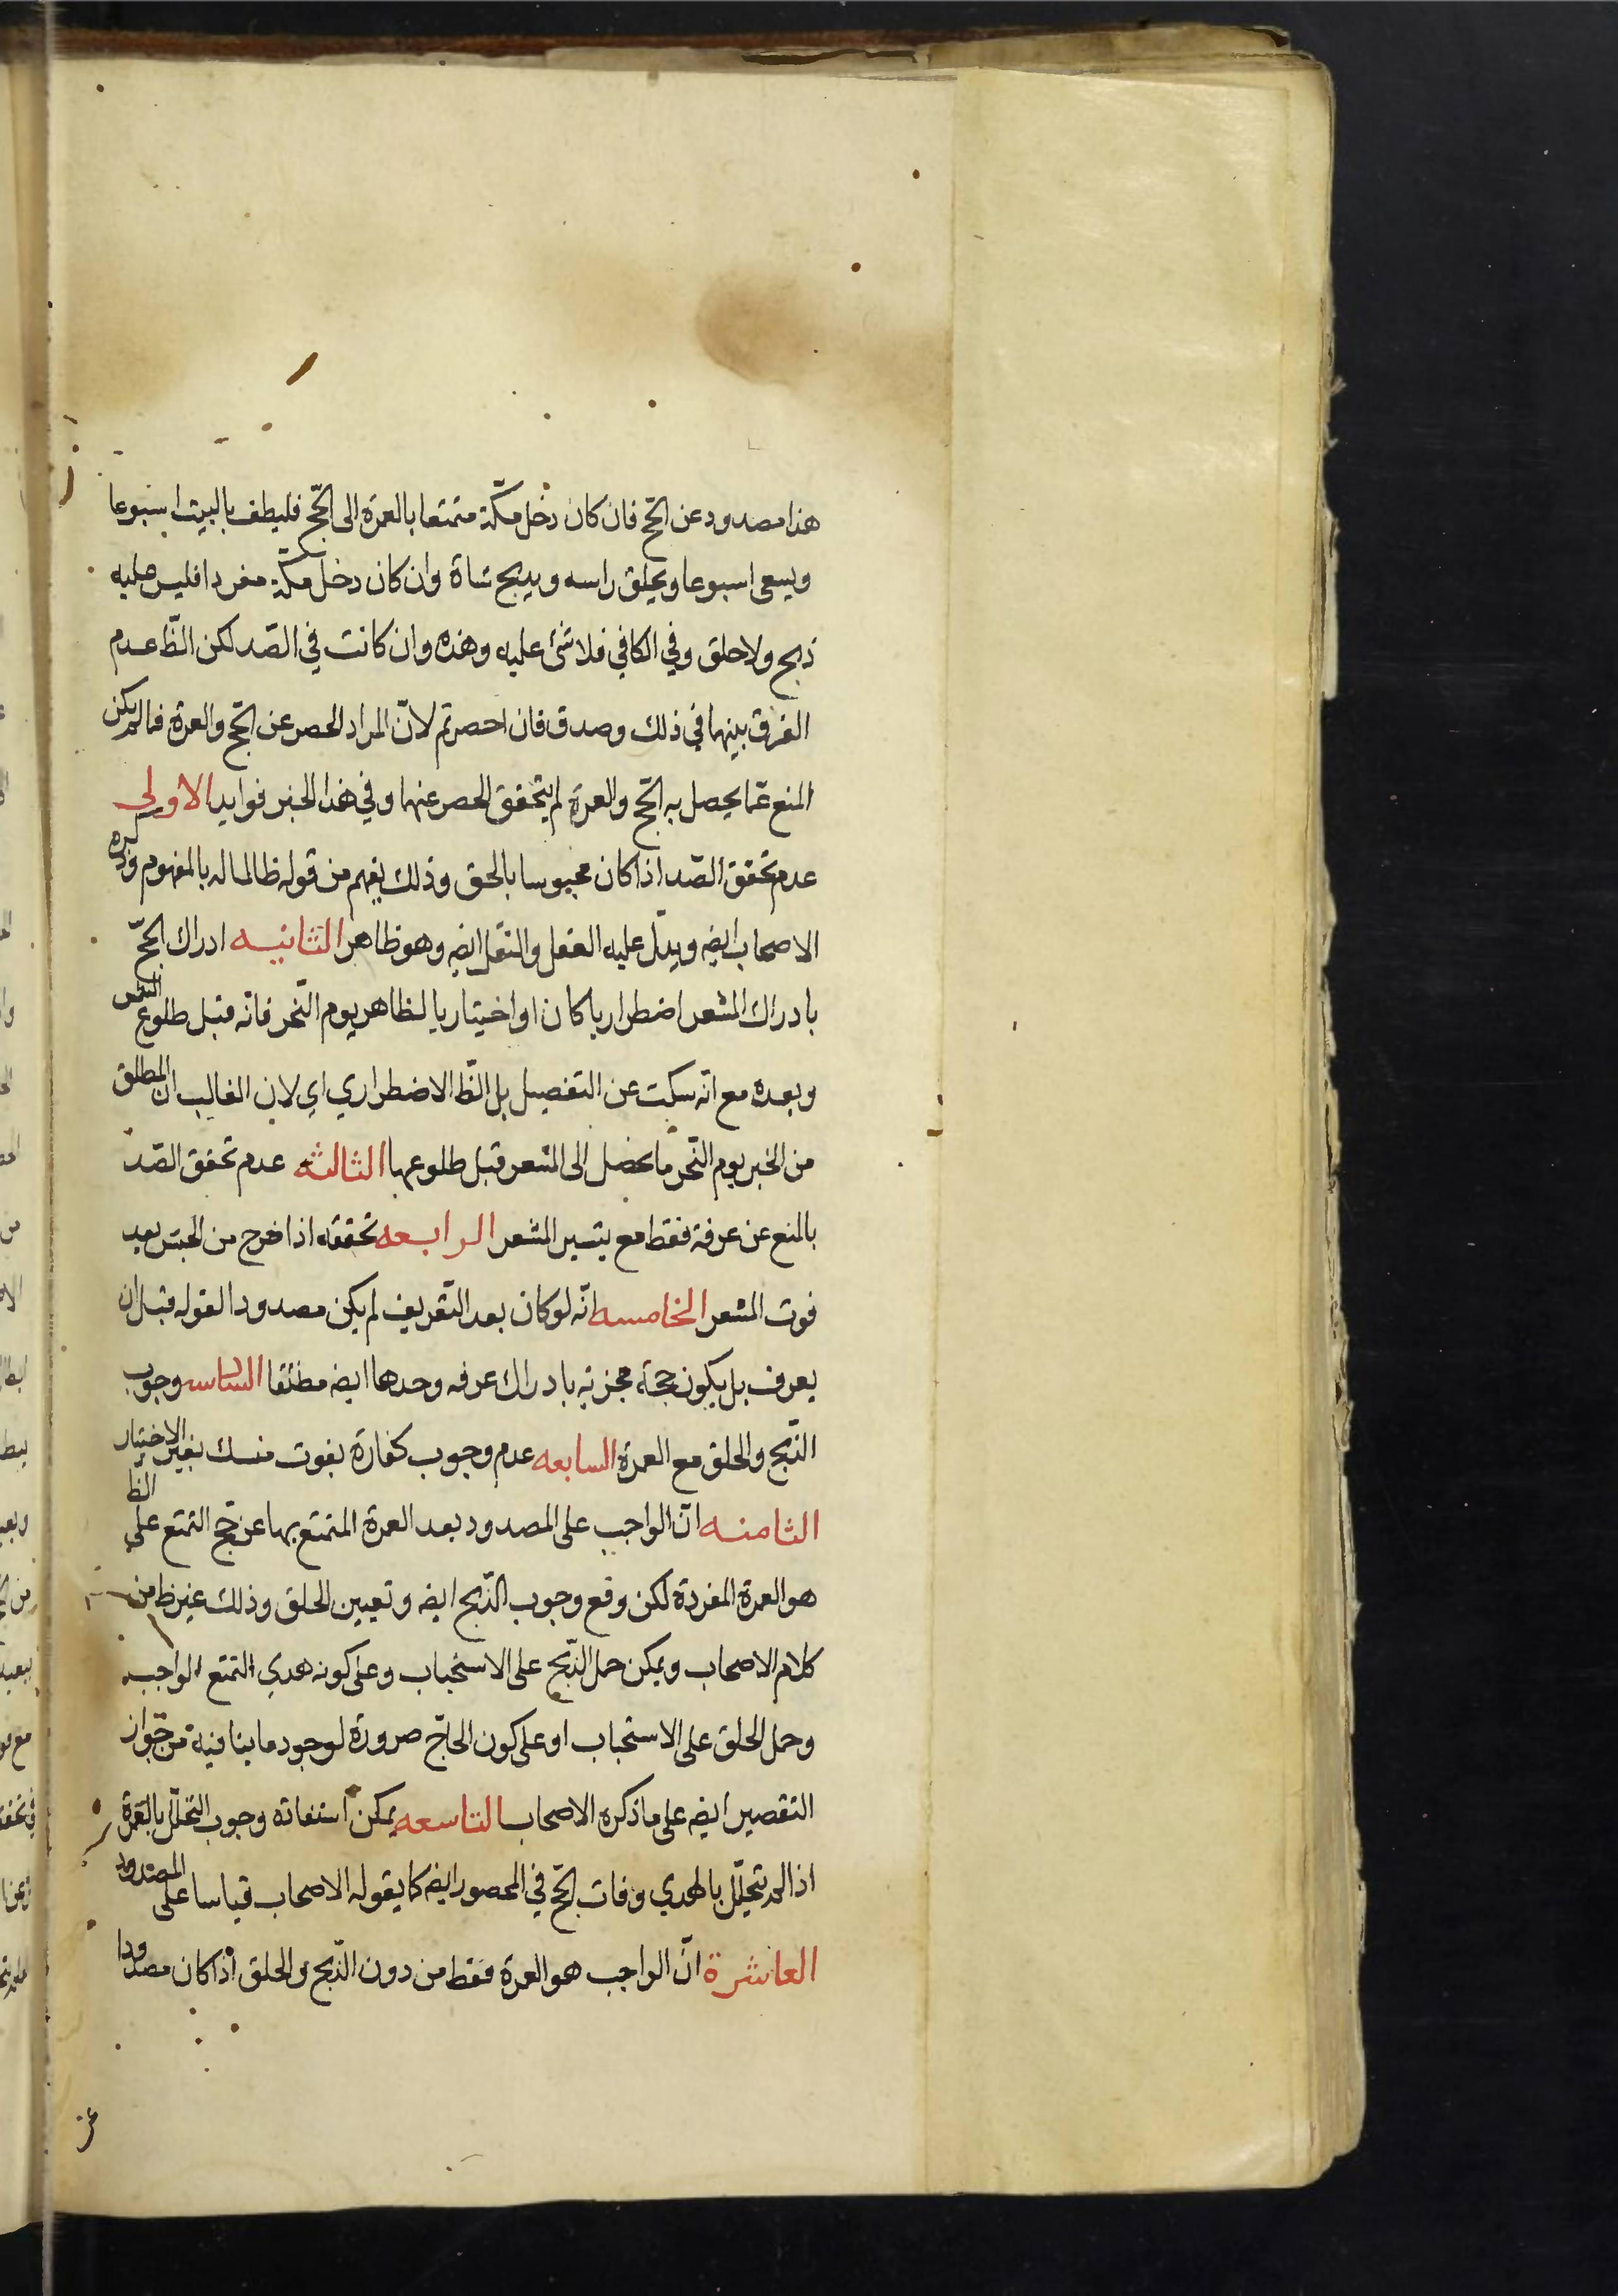 هذا مصدود عن الحج فان كان دخل مكة متمتعا بالعمرة الى الحج فليطف بالبيت اسبوعا
ويسعى اسبوعا ويحلق راسه ويذبح شاة وان كان دخل مكة مفردا فليس عليه
ذبح ولا حلق وفي الكافي فلا شئ عليه وهذه وان كانت في الصّد لكن الظّ عدم
الفرق بينهما في ذلك وصدق فان احصرتم لانّ المراد الحصر عن الحج والعمرة فمالم يكن
المنع عمّا يحصل به الحج والعمرة لم يتحقق الحصر عنهما وفي هذا الخبر فوايد الاولى
عدم تحقق الصّد اذا كان محبوسا بالحق وذلك يفهم من قوله ظالما له بالمفهوم وذكره
الاصحاب ايضه ويدلّ عليه العقل والنقل ايضه وهو ظاهر الثانيه ادراك الحجّ
بادراك المشعر اضطراريا كان او اختياريا لظاهر يوم النّحر فانّه قبل طلوع الشمس
وبعده مع انّه سكت عن التفصيل بل الظّ الاضطراري اي لان الغالب ان المطلق
من الخبر يوم النّحر ما يحصل الى المشعر قبل طلوعها الثالثه عدم تحقق الصّد
بالمنع عن عرفة فقط مع يتسير المشعر الرابعه تحققه اذا خرج من الحبس بعد
فوت المشعر الخامسه انّه لو كان بعد التّعريف لم يكن مصدودا لقوله قبل ان
يعرف بل يكون حجة مجزية بادراك عرفه وحدها ايضه مطلقا السادسه وجوب
الذّبح والحلق مع العمرة السابعه عدم وجوب كفارة بفوت منسك بغير الاختيار
الثامنه انّ الواجب على المصدود بعد العمرة المتمتع بها عن حج التمتع على الظ
هو العمرة المفردة لكن وقع وجوب الذّبح ايضه وتعيين الحلق وذلك غير ظ من
كلام الاصحاب ويمكن حمل الذّبح على الاستحباب وعلى كونه هدي التمتع الواجب
وحمل الحلق على الاستحباب او على كون الحاجّ صرورة لوجود ما ينافيه من جواز
التقصير ايضه على ما ذكره الاصحاب التاسعه يمكن استفادة وجوب التحلّل بالعمرة
اذا لم يتحلّل بالهدي وفات الحجّ في المحصور ايضه كما يقوله الاصحاب قياسا على المصدود
العاشرة انّ الواجب هو العمرة فقط من دون الذّبح والحلق اذا كان مصدودا